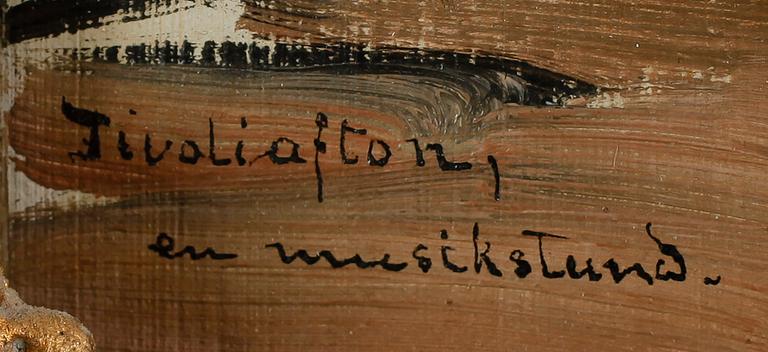 Tivoliafton,
en musikstund.